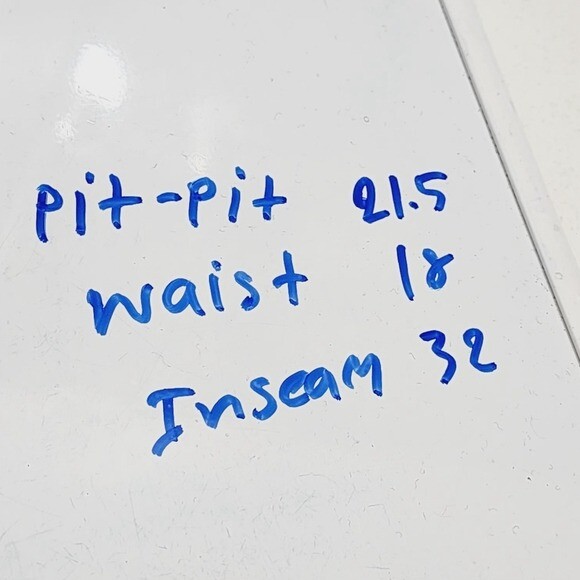 pit-pit 21.5
waist 18
Inseam 32